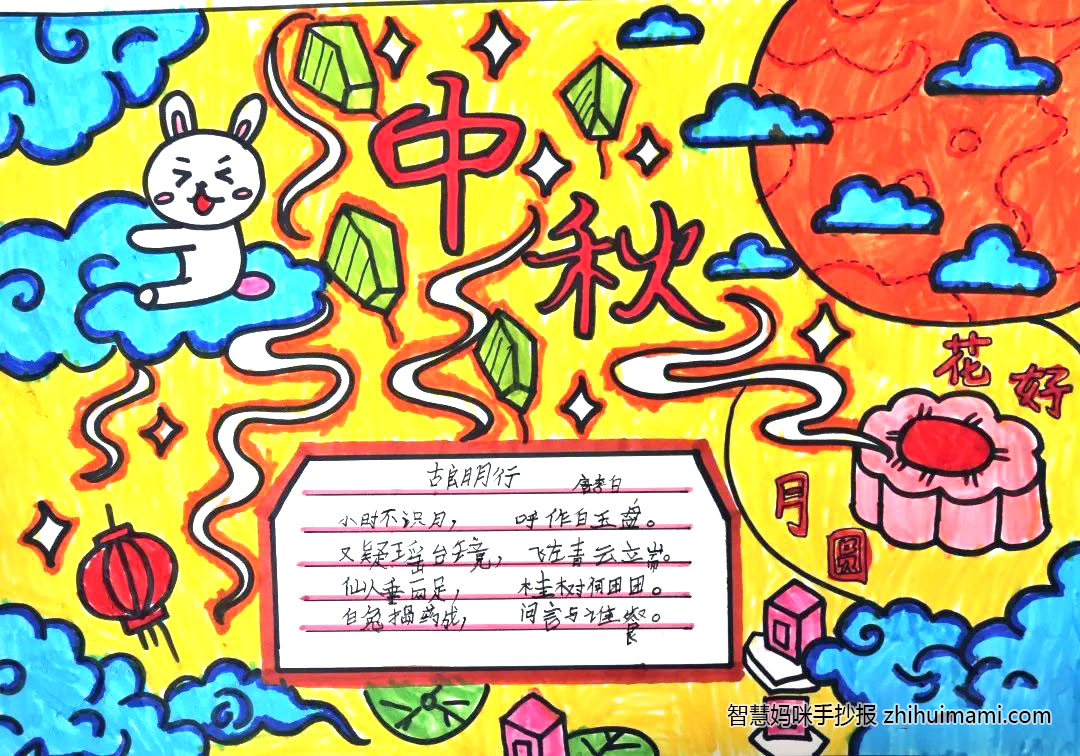 中秋
花好
月圆
古朗月行
唐李白
小时不识月，呼作白玉盘。
又疑瑶台镜，飞在青云端。
仙人垂两足，桂树何团团。
白兔捣药成，问言与谁餐。
智慧妈咪手抄报 zhihuimami.com